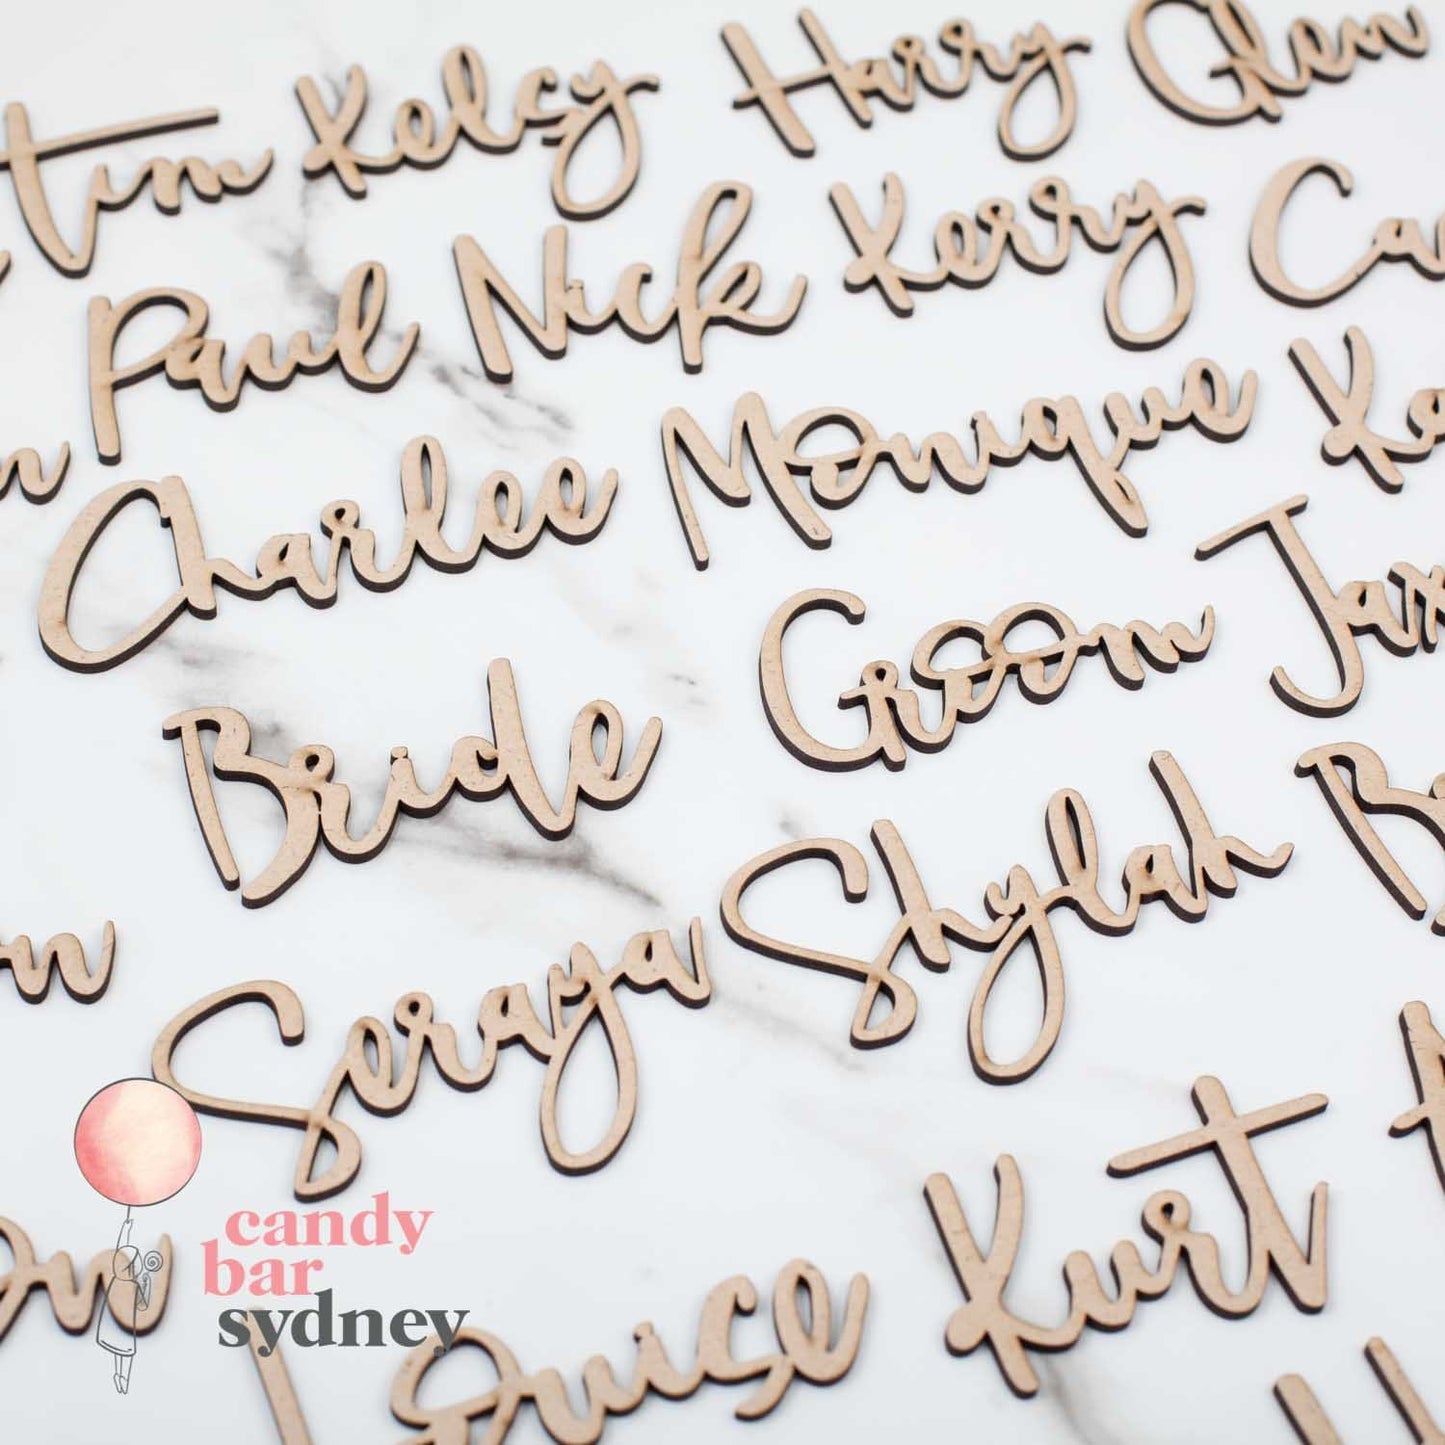 Tim Kelsy Harry Glen
Paul Nick Kerry
Charlee Monique
Bride Groom
Seraya Shylah
Kurt
Louise
candy
bar
sydney